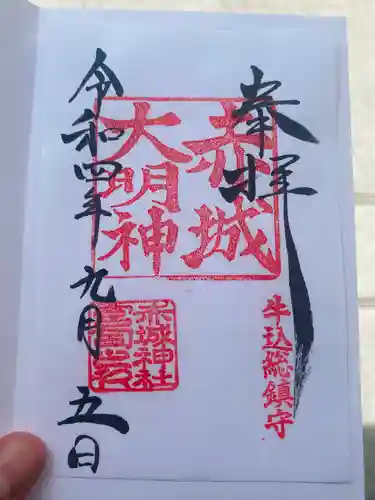 奉拝
赤城
大明神
牛込総鎮守
赤城神社
令和四年九月五日